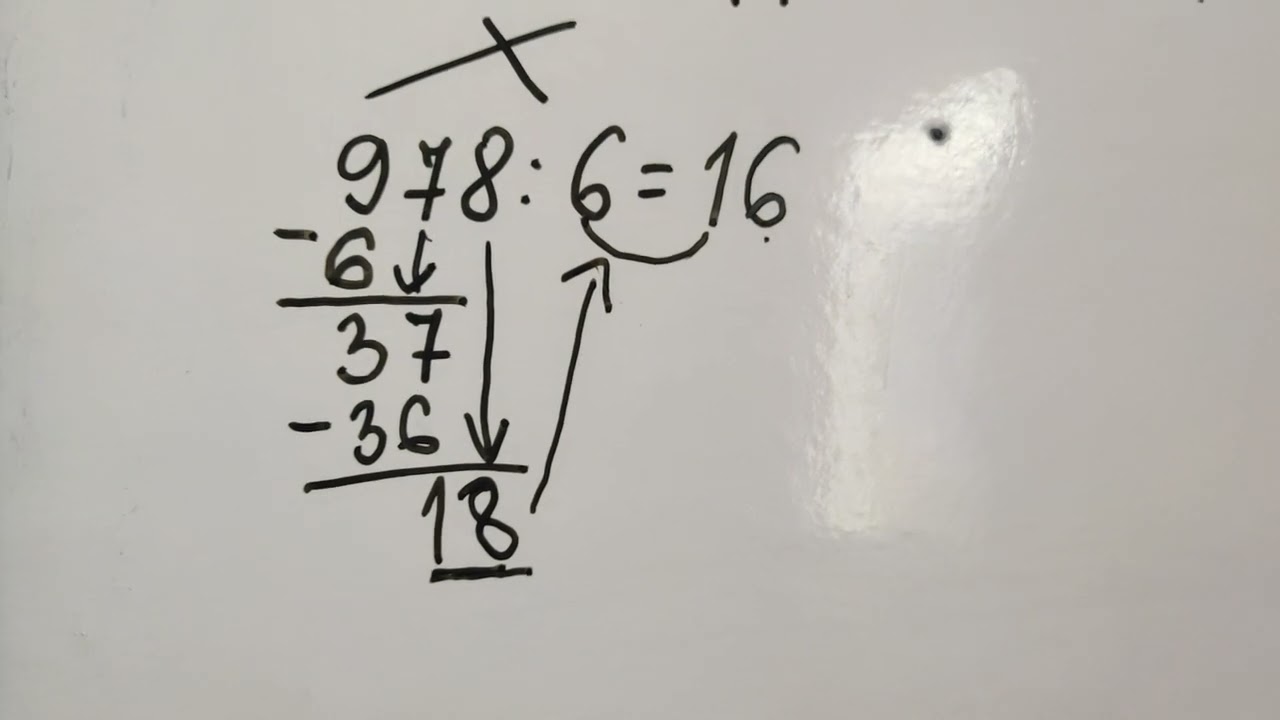 978:6=16
-6
37
-36
18